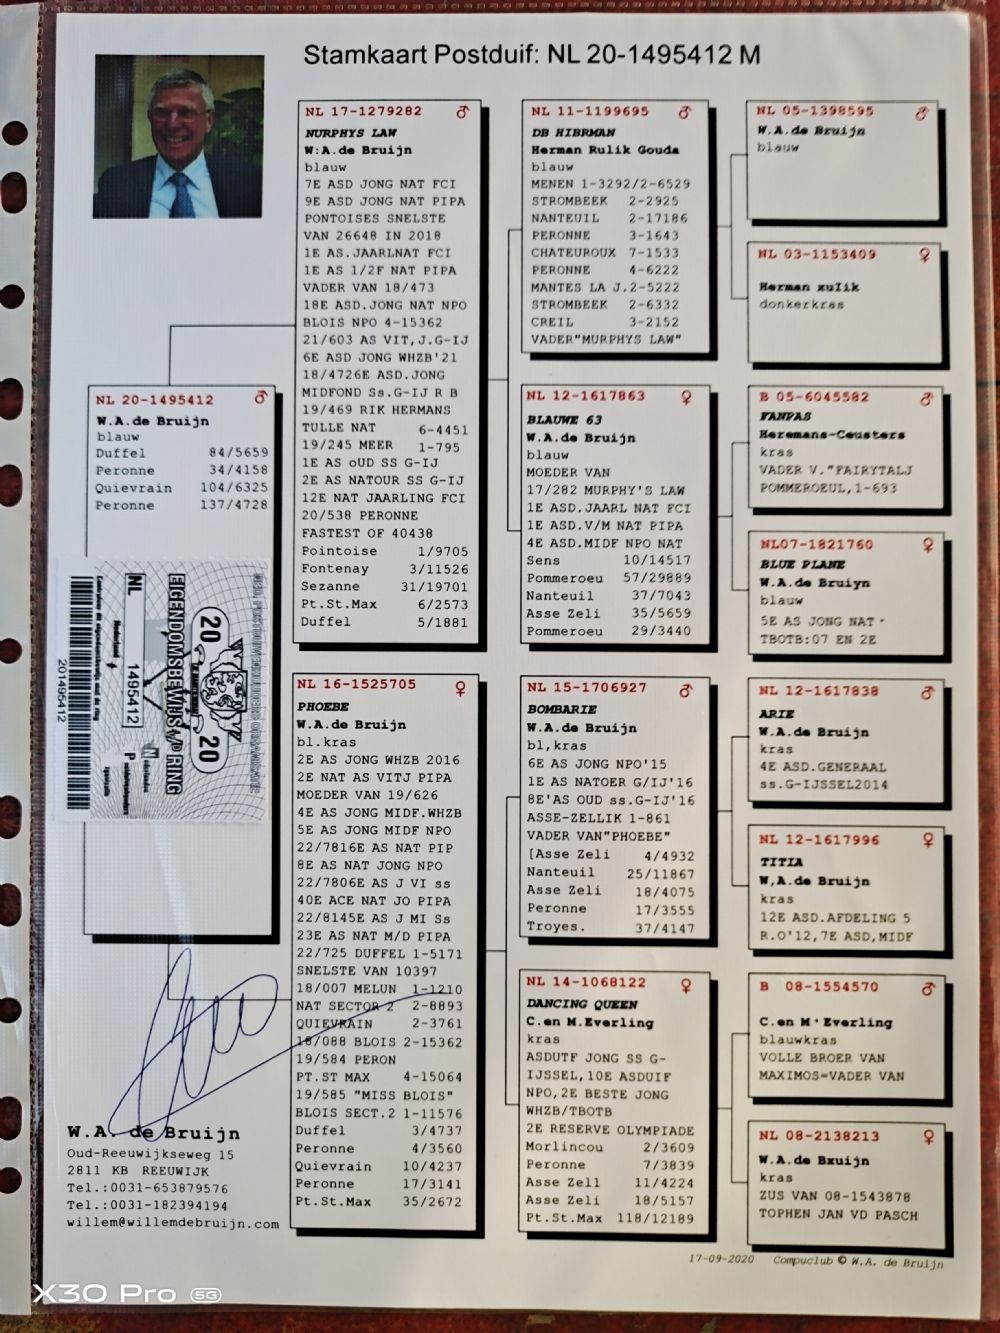 Stamkaart Postduif: NL 20-1495412 M
NL 20-1495412 ♂
W.A.de Bruijn
blauw
Duffel 84/5659
Peronne 34/4158
Quievrain 104/6325
Peronne 137/4728
NL 17-1279282 ♂
NURPHYS LAW
W:A.de Bruijn
blauw
7E ASD JONG NAT FCI
9E ASD JONG NAT PIPA
PONTOISES SNELSTE
VAN 26648 IN 2018
1E AS.JAARLNAT FCI
1E AS 1/2F NAT PIPA
VADER VAN 18/473
18E ASD.JONG NAT NPO
BLOIS NPO 4-15362
21/603 AS VIT,J.G-IJ
6E ASD JONG WHZB'21
18/4726E ASD.JONG
MIDFOND Ss.G-IJ R B
19/469 RIK HERMANS
TULLE NAT 6-4451
19/245 MEER 1-795
1E AS oUD SS G-IJ
2E AS NATOUR SS G-IJ
12E NAT JAARLING FCI
20/538 PERONNE
FASTEST OF 40438
Pointoise 1/9705
Fontenay 3/11526
Sezanne 31/19701
Pt.St.Max 6/2573
Duffel 5/1881
NL 16-1525705 ♀
PHOEBE
W.A.de Bruijn
bl.kras
2E AS JONG WHZB 2016
2E NAT AS VITJ PIPA
MOEDER VAN 19/626
4E AS JONG MIDF.WHZB
5E AS JONG MIDF NPO
22/7816E AS NAT PIP
8E AS NAT JONG NPO
22/7806E AS J VI ss
40E ACE NAT JO PIPA
22/8145E AS J MI Ss
23E AS NAT M/D PIPA
22/725 DUFFEL 1-5171
SNELSTE VAN 10397
18/007 MELUN 1-1210
NAT SECTOR 2 2-8893
QUIEVRAIN 2-3761
18/088 BLOIS 2-15362
19/584 PERON
PT.ST MAX 4-15064
19/585 "MISS BLOIS"
BLOIS SECT.2 1-11576
Duffel 3/4737
Peronne 4/3560
Quievrain 10/4237
Peronne 17/3141
Pt.St.Max 35/2672
NL 11-1199695 ♂
DB HIBRMAN
Herman Rulik Gouda
blauw
MENEN 1-3292/2-6529
STROMBEEK 2-2925
NANTEUIL 2-17186
PERONNE 3-1643
CHATEUROUX 7-1533
PERONNE 4-6222
MANTES LA J.2-5222
STROMBEEK 2-6332
CREIL 3-2152
VADER"MURPHYS LAW"
NL 12-1617863 ♀
BLAUWE 63
W.A.de Bruijn
blauw
MOEDER VAN
17/282 MURPHY'S LAW
1E ASD.JAARL NAT FCI
1E ASD.V/M NAT PIPA
4E ASD.MIDF NPO NAT
Sens 10/14517
Pommeroeu 57/29889
Nanteuil 37/7043
Asse Zeli 35/5659
Pommeroeu 29/3440
NL 15-1706927 ♂
BOMBARIE
W.A.de Bruijn
bl,kras
6E AS JONG NPO'15
1E AS NATOER G/IJ'16
8E'AS OUD ss.G-IJ'16
ASSE-ZELLIK 1-861
VADER VAN"PHOEBE"
[Asse Zeli 4/4932
Nanteuil 25/11867
Asse Zeli 18/4075
Peronne 17/3555
Troyes. 37/4147
NL 14-1068122 ♀
DANCING QUEEN
C.en M.Everling
kras
ASDUTF JONG SS G-
IJSSEL,10E ASDUIF
NPO,2E BESTE JONG
WHZB/TBOTB
2E RESERVE OLYMPIADE
Morlincou 2/3609
Peronne 7/3839
Asse Zell 11/4224
Asse Zeli 18/5157
Pt.St.Max 118/12189
NL 05-1398595 ♂
W.A.de Bruijn
blauw
NL 03-1153409 ♀
Herman xulik
donkerkras
B 05-6045582 ♂
FANPAS
Heremans-Ceusters
kras
VADER V."FAIRYTALJ
POMMEROEUL,1-693
NL07-1821760 ♀
BLUE PLANE
W.A.de Bruiyn
blauw
5E AS JONG NAT·
TBOTB:07 EN 2E
NL 12-1617838 ♂
ARIE
W.A.de Bruijn
kras
4E ASD.GENERAAL
ss.G-IJSSEL2014
NL 12-1617996 ♀
TITIA
W,A.de Bruijn
kras
12E ASD.AFDELING 5
R.O'12,7E ASD,MIDF
B 08-1554570 ♂
C.en M·Everling
blauwkras
VOLLE BROER VAN
MAXIMOS=VADER VAN
NL 08-2138213 ♀
W.A.de Bxuijn
kras
ZUS VAN 08-1543878
TOPHEN JAN VD PASCH
EIGENDOMSBEWIJS V/D RING
20 20
NL 1495412
Nederland
201495412
W.A. de Bruijn
Oud-Reeuwijkseweg 15
2811 KB REEUWIJK
Tel.:0031-653879576
Tel.:0031-182394194
willem@willemdebruijn.com
17-09-2020 Compuclub © W.A. de Bruijn
X30 Pro 5G